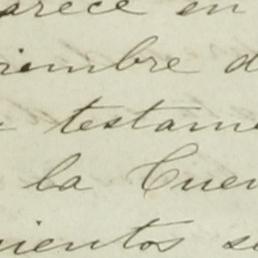 arece en
iembre d
testame
la Cuen
uientos se